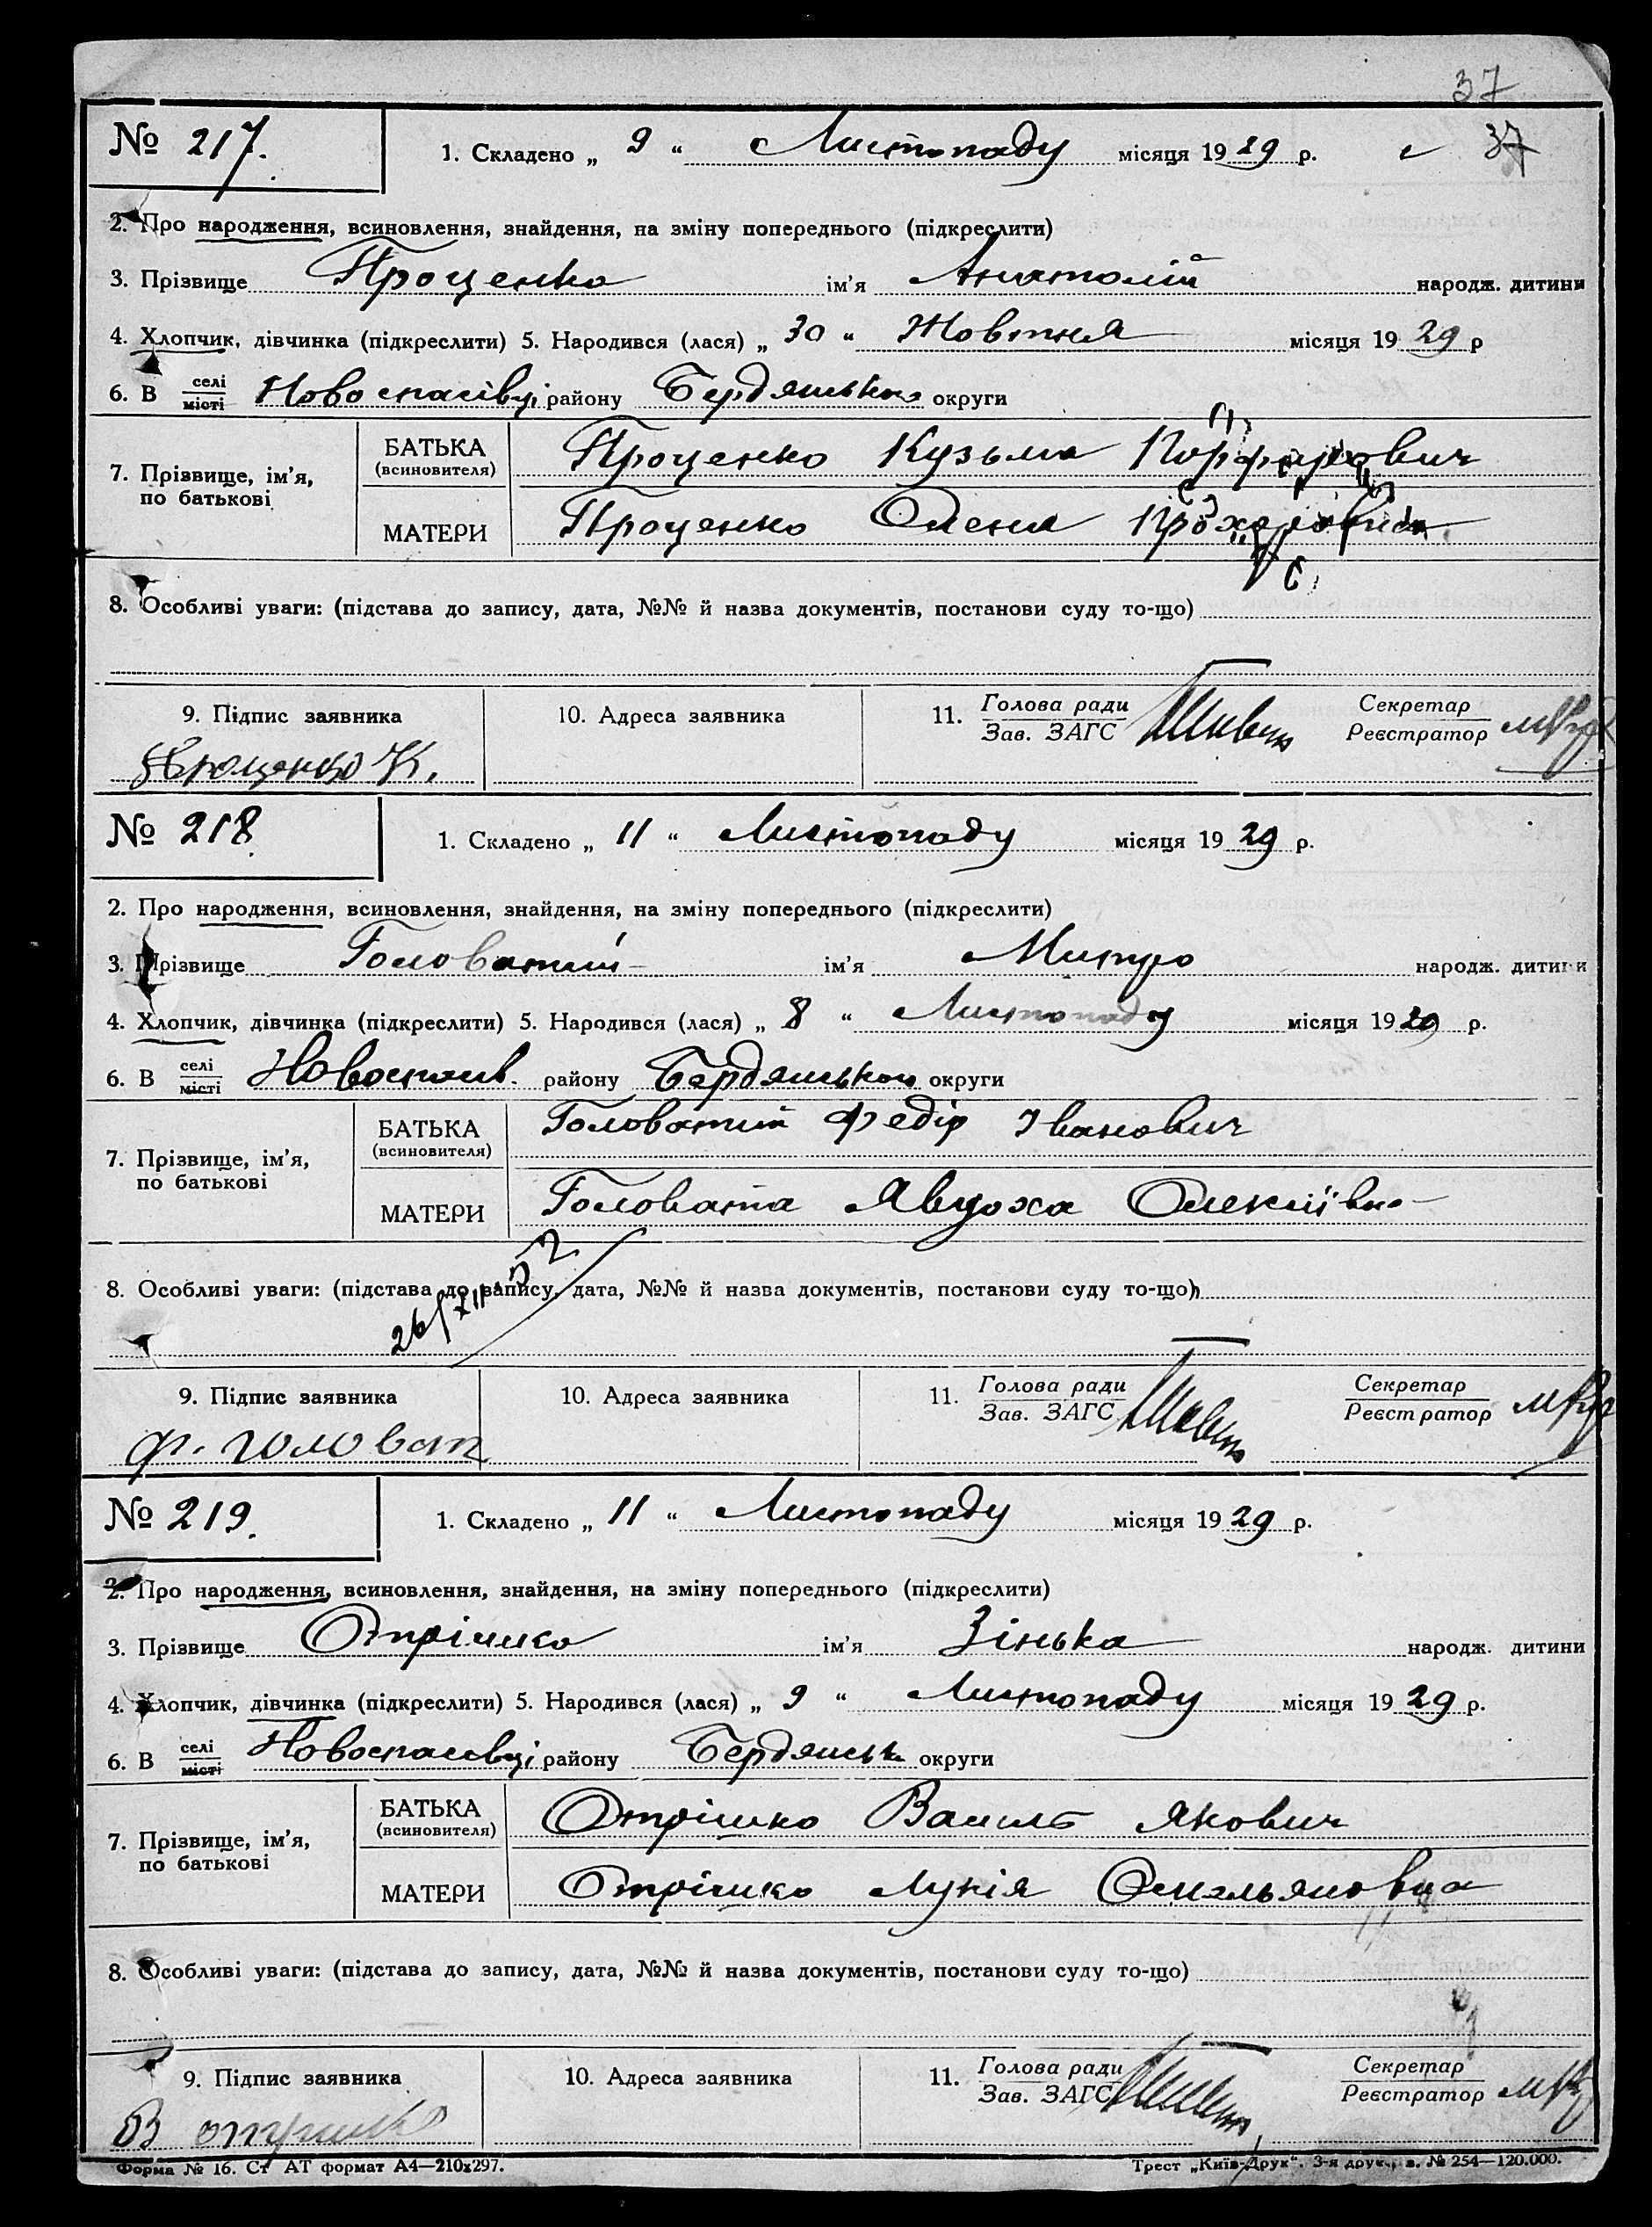 37
№ 217. 1. Складено „ 9 “ Листопаду місяця 1929 р. 37
2. Про народження, всиновлення, знайдення, на зміну попереднього (підкреслити)
3. Прізвище Проценко ім’я Анатолій народж. дитини
4. Хлопчик, дівчинка (підкреслити) 5. Народився (лася) „ 30 “ Жовтня місяця 19 29 р
6. В селі місті Новоспасівці району Бердянської округи
7. Прізвище, ім’я, по батькові
БАТЬКА (всиновителя) Проценко Кузьма
МАТЕРИ Проценко Олена
8. Особливі уваги: (підстава до запису, дата, №№ й назва документів, постанови суду то-що)
9. Підпис заявника 10. Адреса заявника 11. Голова ради Зав. ЗАГС Секретар Реєстратор
Проценко К.
№ 218 1. Складено „ 11 “ Листопаду місяця 19 29 р.
2. Про народження, всиновлення, знайдення, на зміну попереднього (підкреслити)
3. Прізвище Головатий ім’я Митро народж. дитини
4. Хлопчик, дівчинка (підкреслити) 5. Народився (лася) „ 8 “ Листопаду місяця 19 29 р.
6. В селі місті Новоспасів. району Бердянської округи
7. Прізвище, ім’я, по батькові
БАТЬКА (всиновителя) Головатий Федір Іванович
МАТЕРИ Головата Явдоха Олексіївна
8. Особливі уваги: (підстава до запису, дата, №№ й назва документів, постанови суду то-що)
26/XII-52
9. Підпис заявника 10. Адреса заявника 11. Голова ради Зав. ЗАГС Секретар Реєстратор
Ф. Головат
№ 219. 1. Складено „ 11 “ Листопаду місяця 19 29 р.
2. Про народження, всиновлення, знайдення, на зміну попереднього (підкреслити)
3. Прізвище Отрішко ім’я Зінька народж. дитини
4. Хлопчик, дівчинка (підкреслити) 5. Народився (лася) „ 9 “ Листопаду місяця 19 29 р.
6. В селі місті Новоспасівці району Бердянськ округи
7. Прізвище, ім’я, по батькові
БАТЬКА (всиновителя) Отрішко Василь Якович
МАТЕРИ Отрішко Лукія Омельяновна
8. Особливі уваги: (підстава до запису, дата, №№ й назва документів, постанови суду то-що)
9. Підпис заявника 10. Адреса заявника 11. Голова ради Зав. ЗАГС Секретар Реєстратор
В отришко
Форма № 16. Ст АТ формат А4—210х297. Трест „Київ-Друк“. 3-я друк., з. № 254—120.000.